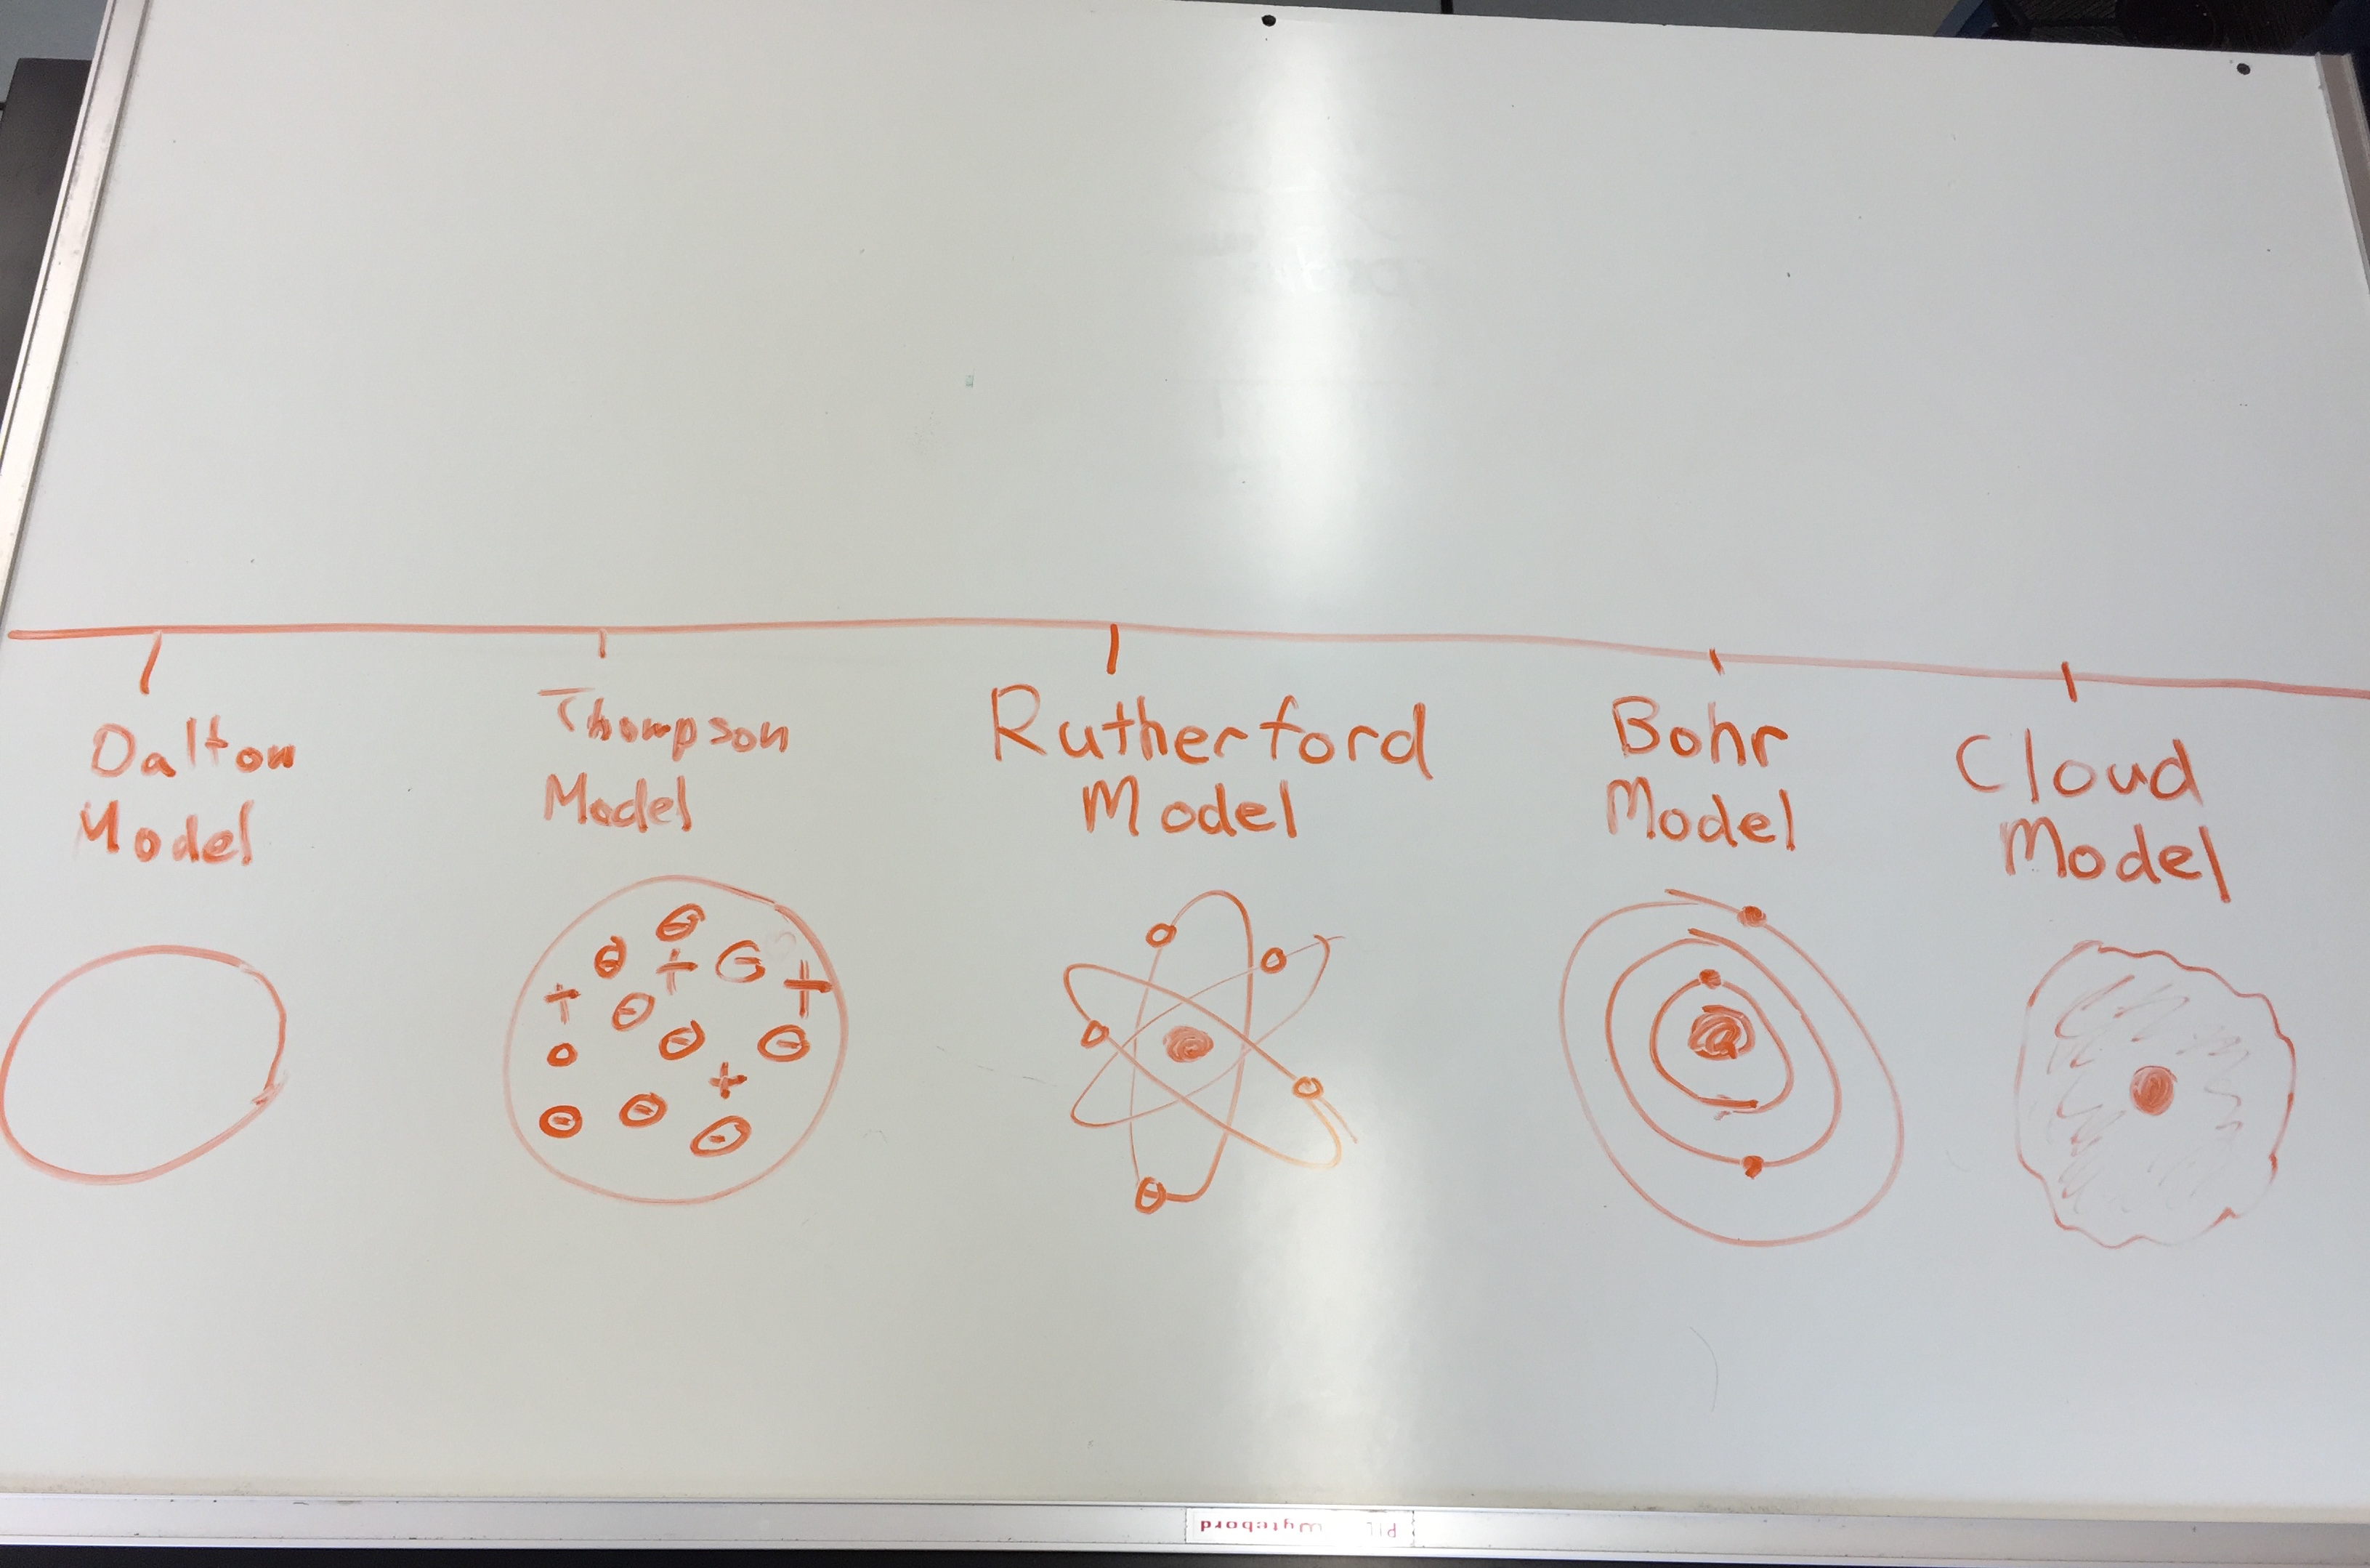 Dalton
Model
Thompson
Model
Rutherford
Model
Bohr
Model
Cloud
Model
PIL Wytebord